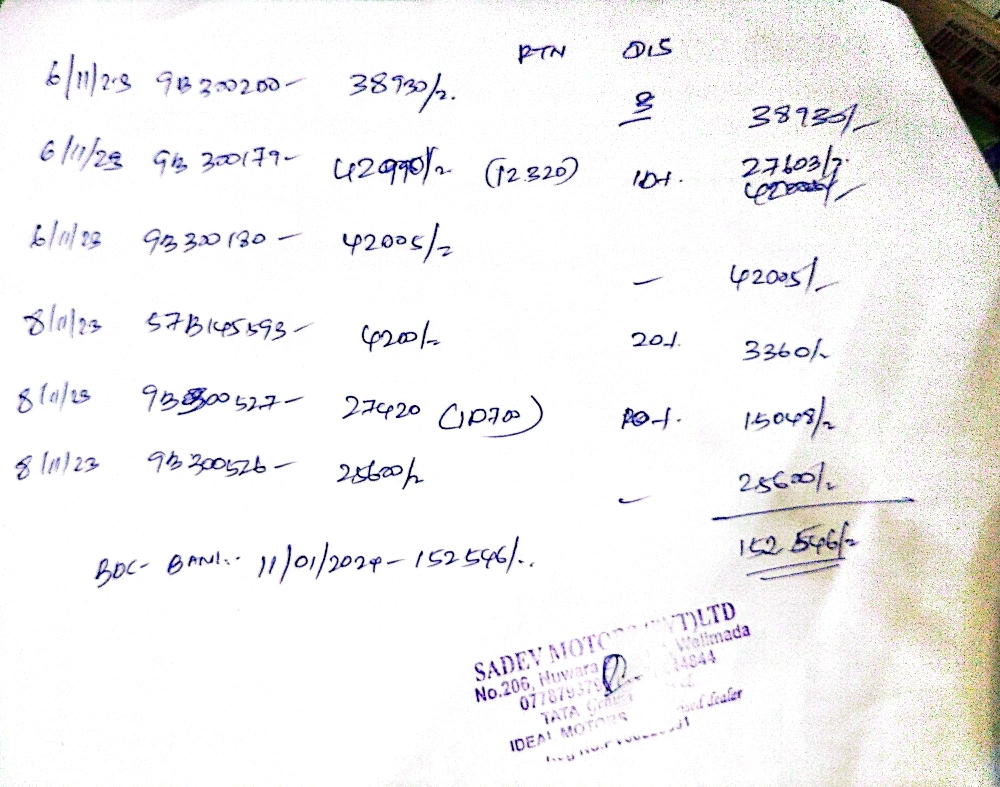 RTN DIS
6/11/23 9B 300200 - 38930/=. 8 38930/-
6/11/23 9B 300179 - 42990/= (12320) 10%. 27603/=.
6/11/23 9B 300180 - 42005/= - 42005/-
8/11/23 57B145593 - 4200/= 20% 3360/=
8/11/23 9B300527 - 27420 (10700) 10%. 15048/=
8/11/23 9B 300526 - 25600/= - 25600/=
152 546/=
BOC - BANK. 11/01/2024 - 152546/-.
SADEV MOTO (PVT)LTD
No.206, Huwara Welimada
TATA
IDEAL MOTORS dealer